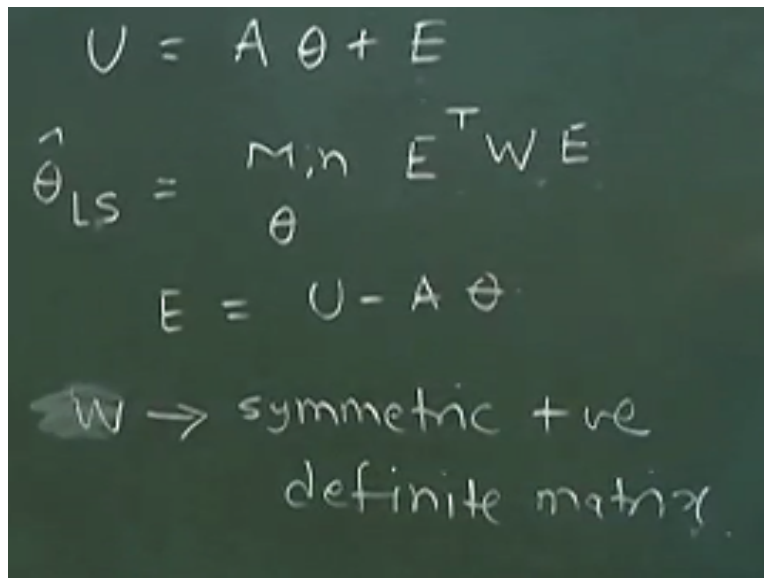 U = A θ + E
θ̂_LS = Min E^T W E
θ
E = U - A θ
W → symmetric +ve
definite matrix